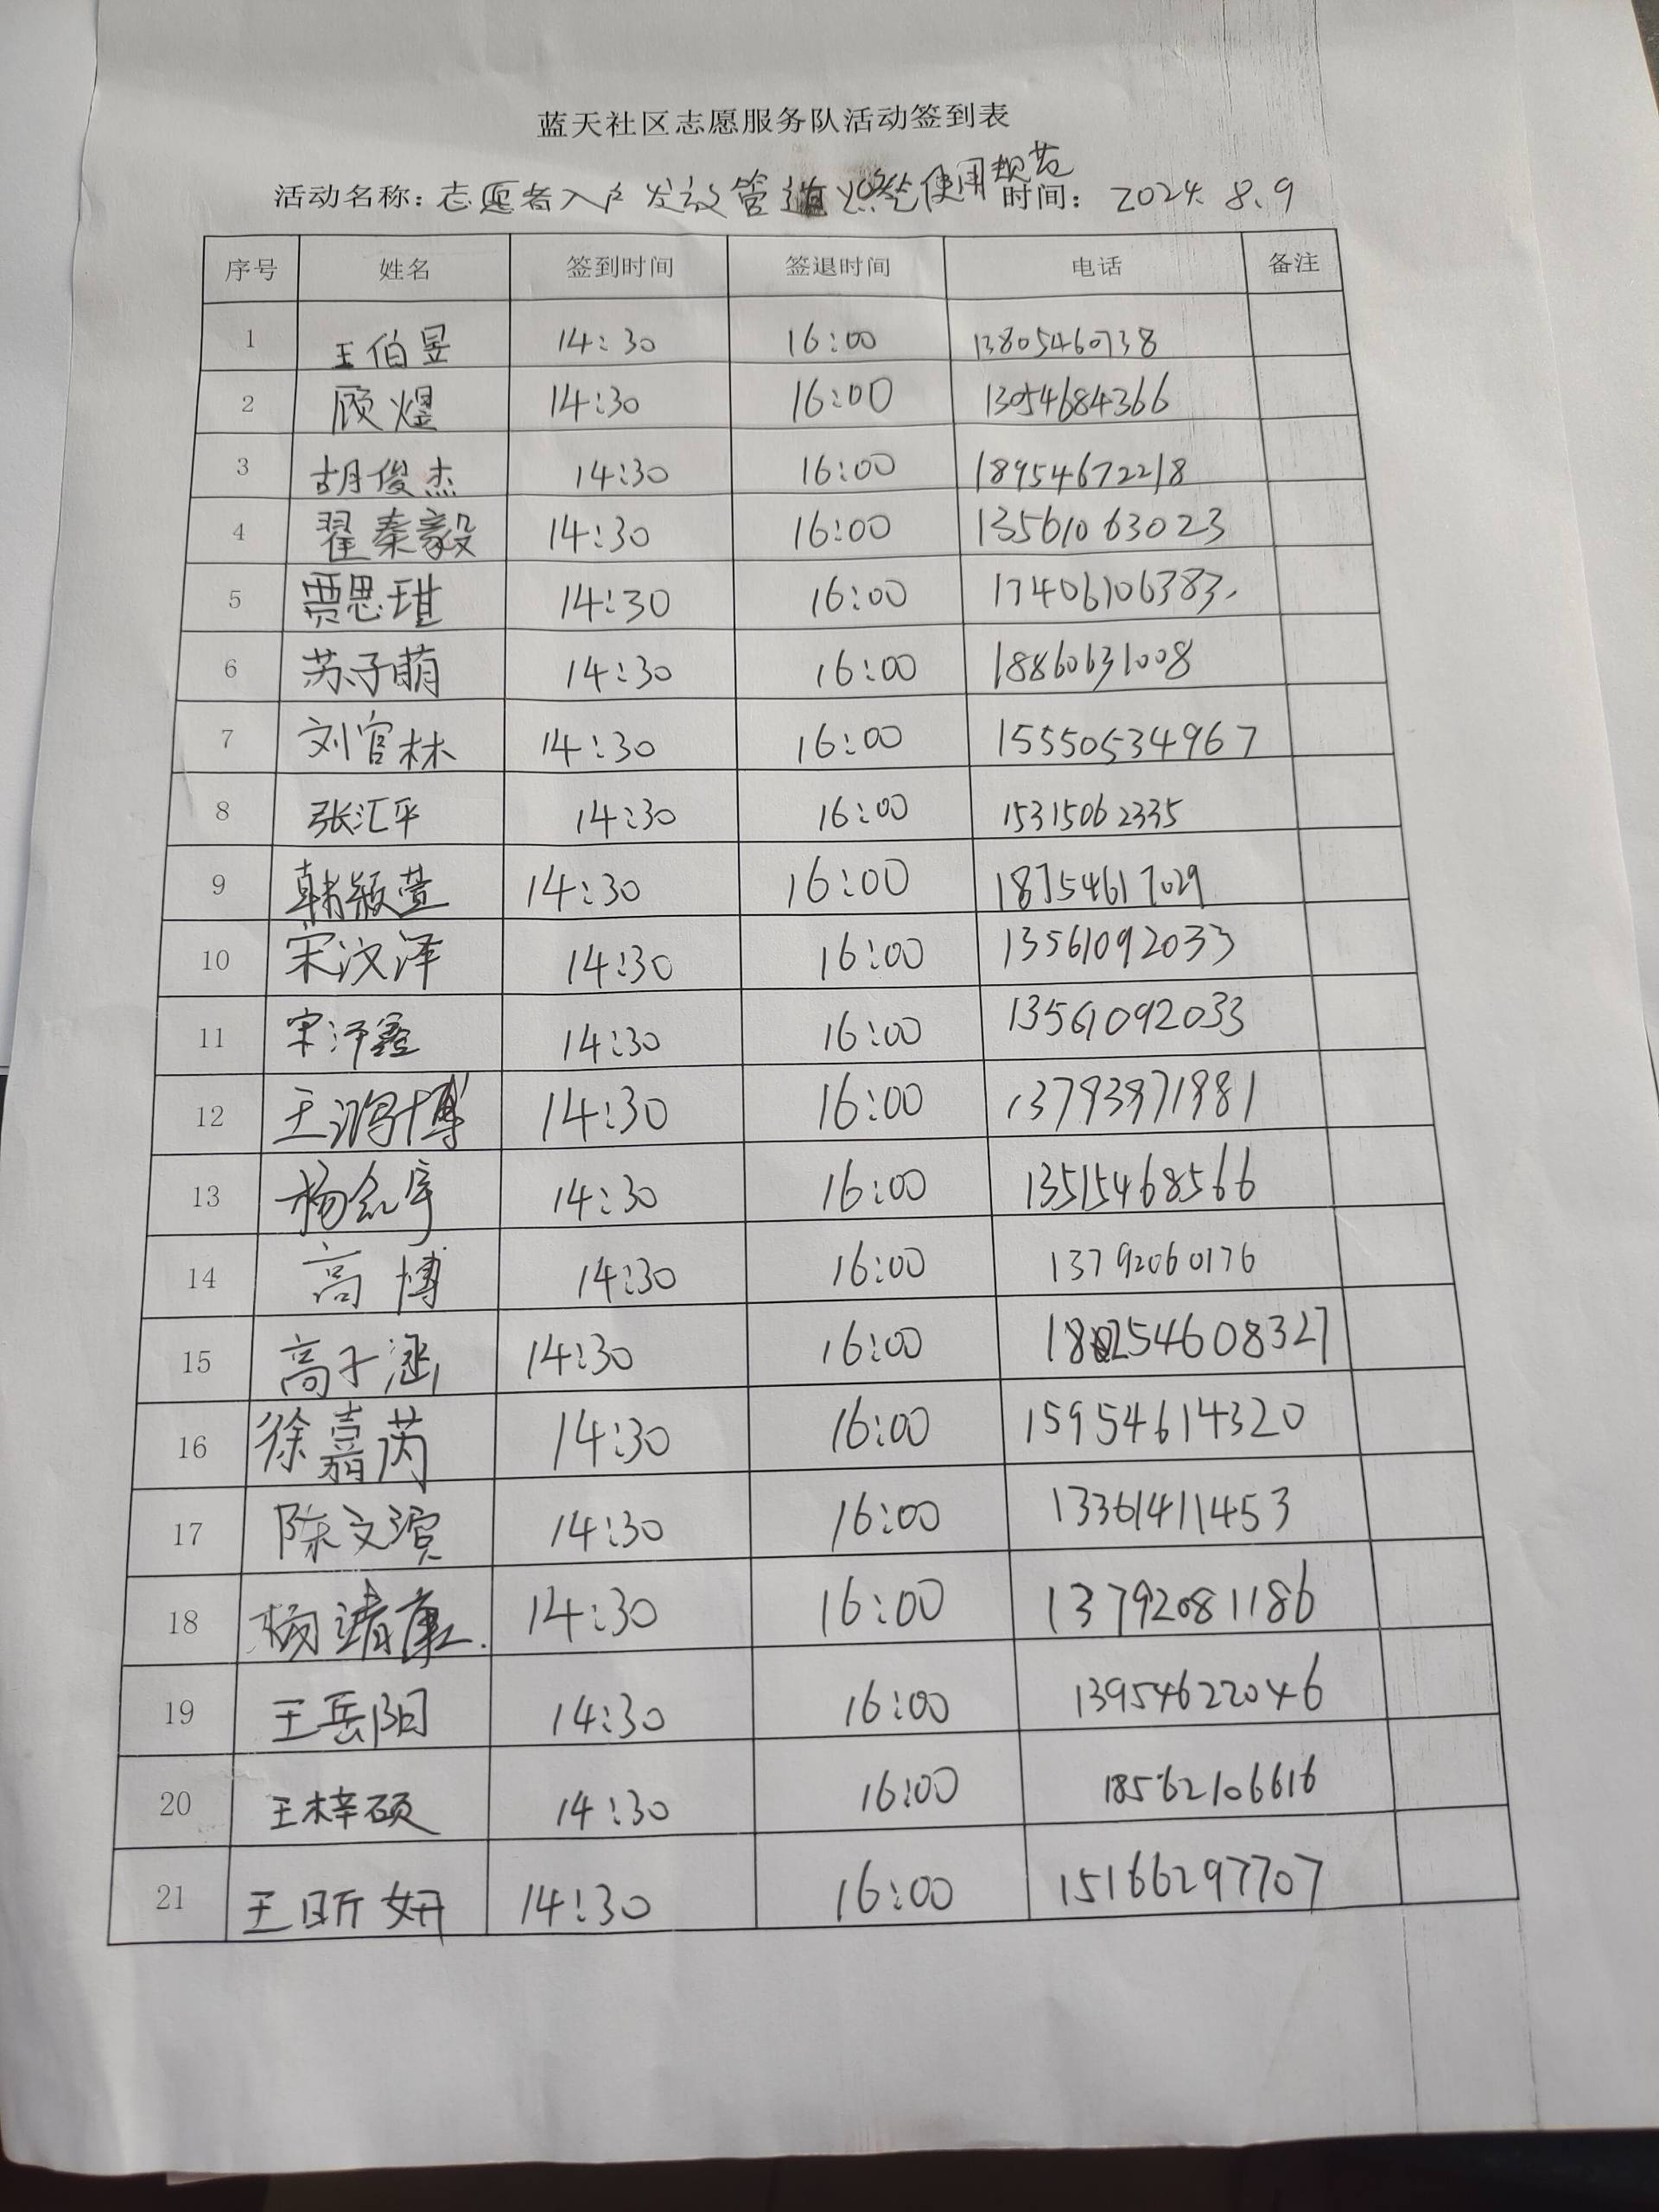 蓝天社区志愿服务队活动签到表
活动名称：志愿者入户发放管道燃气使用规范 时间：2024.8.9
序号 姓名 签到时间 签退时间 电话 备注
1 王伯昱 14:30 16:00 13805460738
2 顾煜 14:30 16:00 13054684366
3 胡俊杰 14:30 16:00 18954672218
4 翟秦毅 14:30 16:00 13561063023
5 贾思琪 14:30 16:00 17406106383
6 苏子萌 14:30 16:00 18860631008
7 刘官林 14:30 16:00 15550534967
8 张汇平 14:30 16:00 15315062335
9 韩颖萱 14:30 16:00 18754617029
10 宋汶泽 14:30 16:00 13561092033
11 宋泽鑫 14:30 16:00 13561092033
12 王鸿博 14:30 16:00 13793971981
13 14:30 16:00 13515468566
14 高博 14:30 16:00 13792060176
15 高子涵 14:30 16:00
16 徐嘉芮 14:30 16:00 15954614320
17 陈文滨 14:30 16:00 13361411453
18 杨靖康 14:30 16:00 13792081186
19 王岳阳 14:30 16:00 13954622046
20 王梓硕 14:30 16:00 18562106616
21 王昕妍 14:30 16:00 15166297707